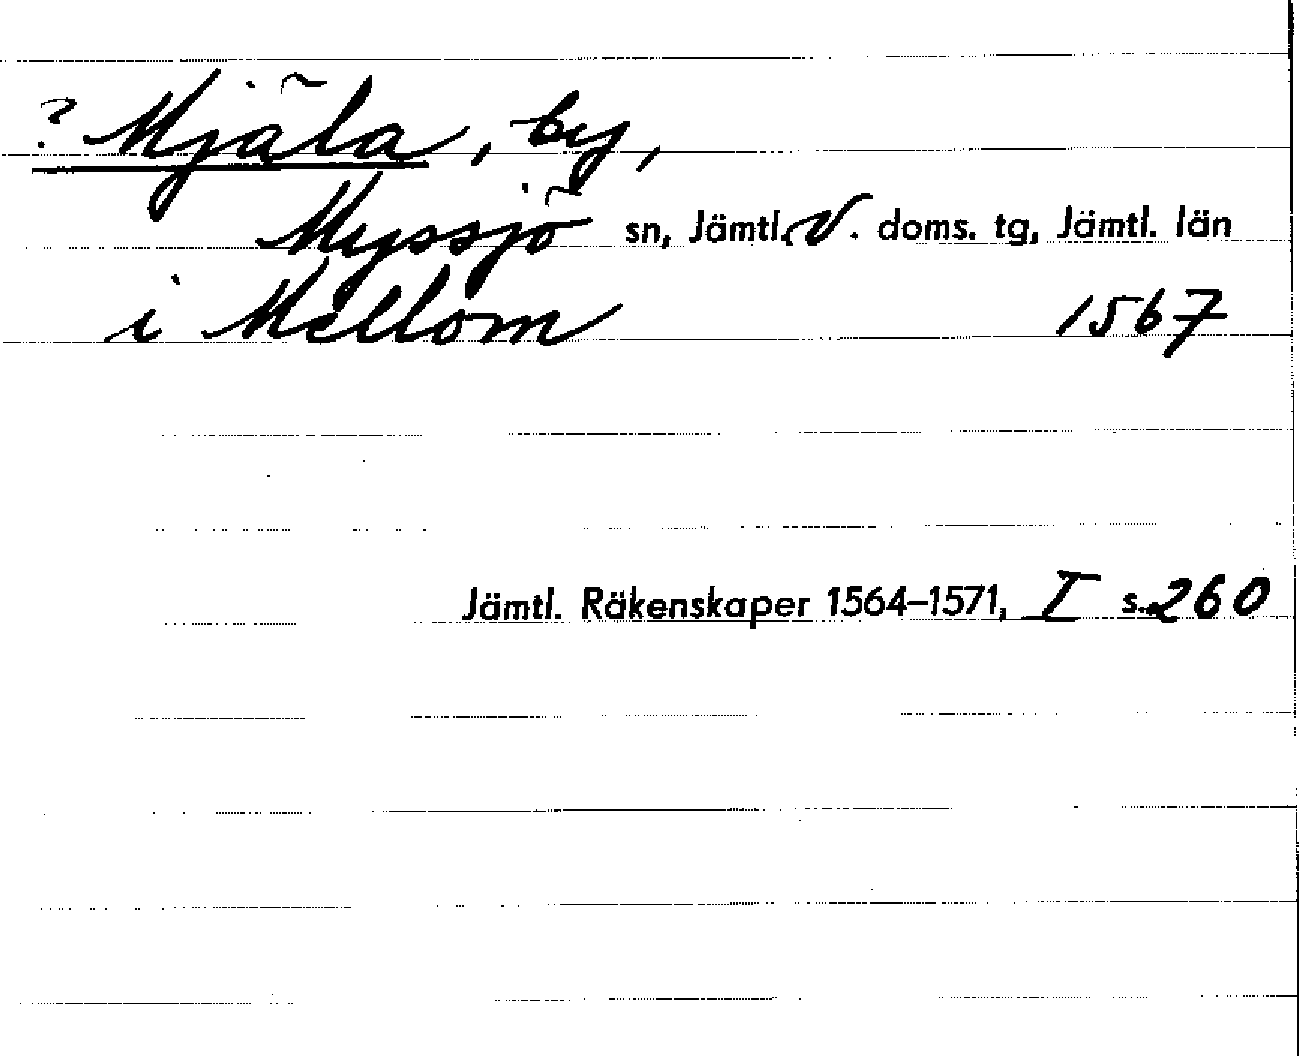 ? Mjäla, by,
Myssjö sn, Jämtl. V. doms. tg, Jämtl. län
i Mellom 1567
Jämtl. Räkenskaper 1564–1571, I s. 260